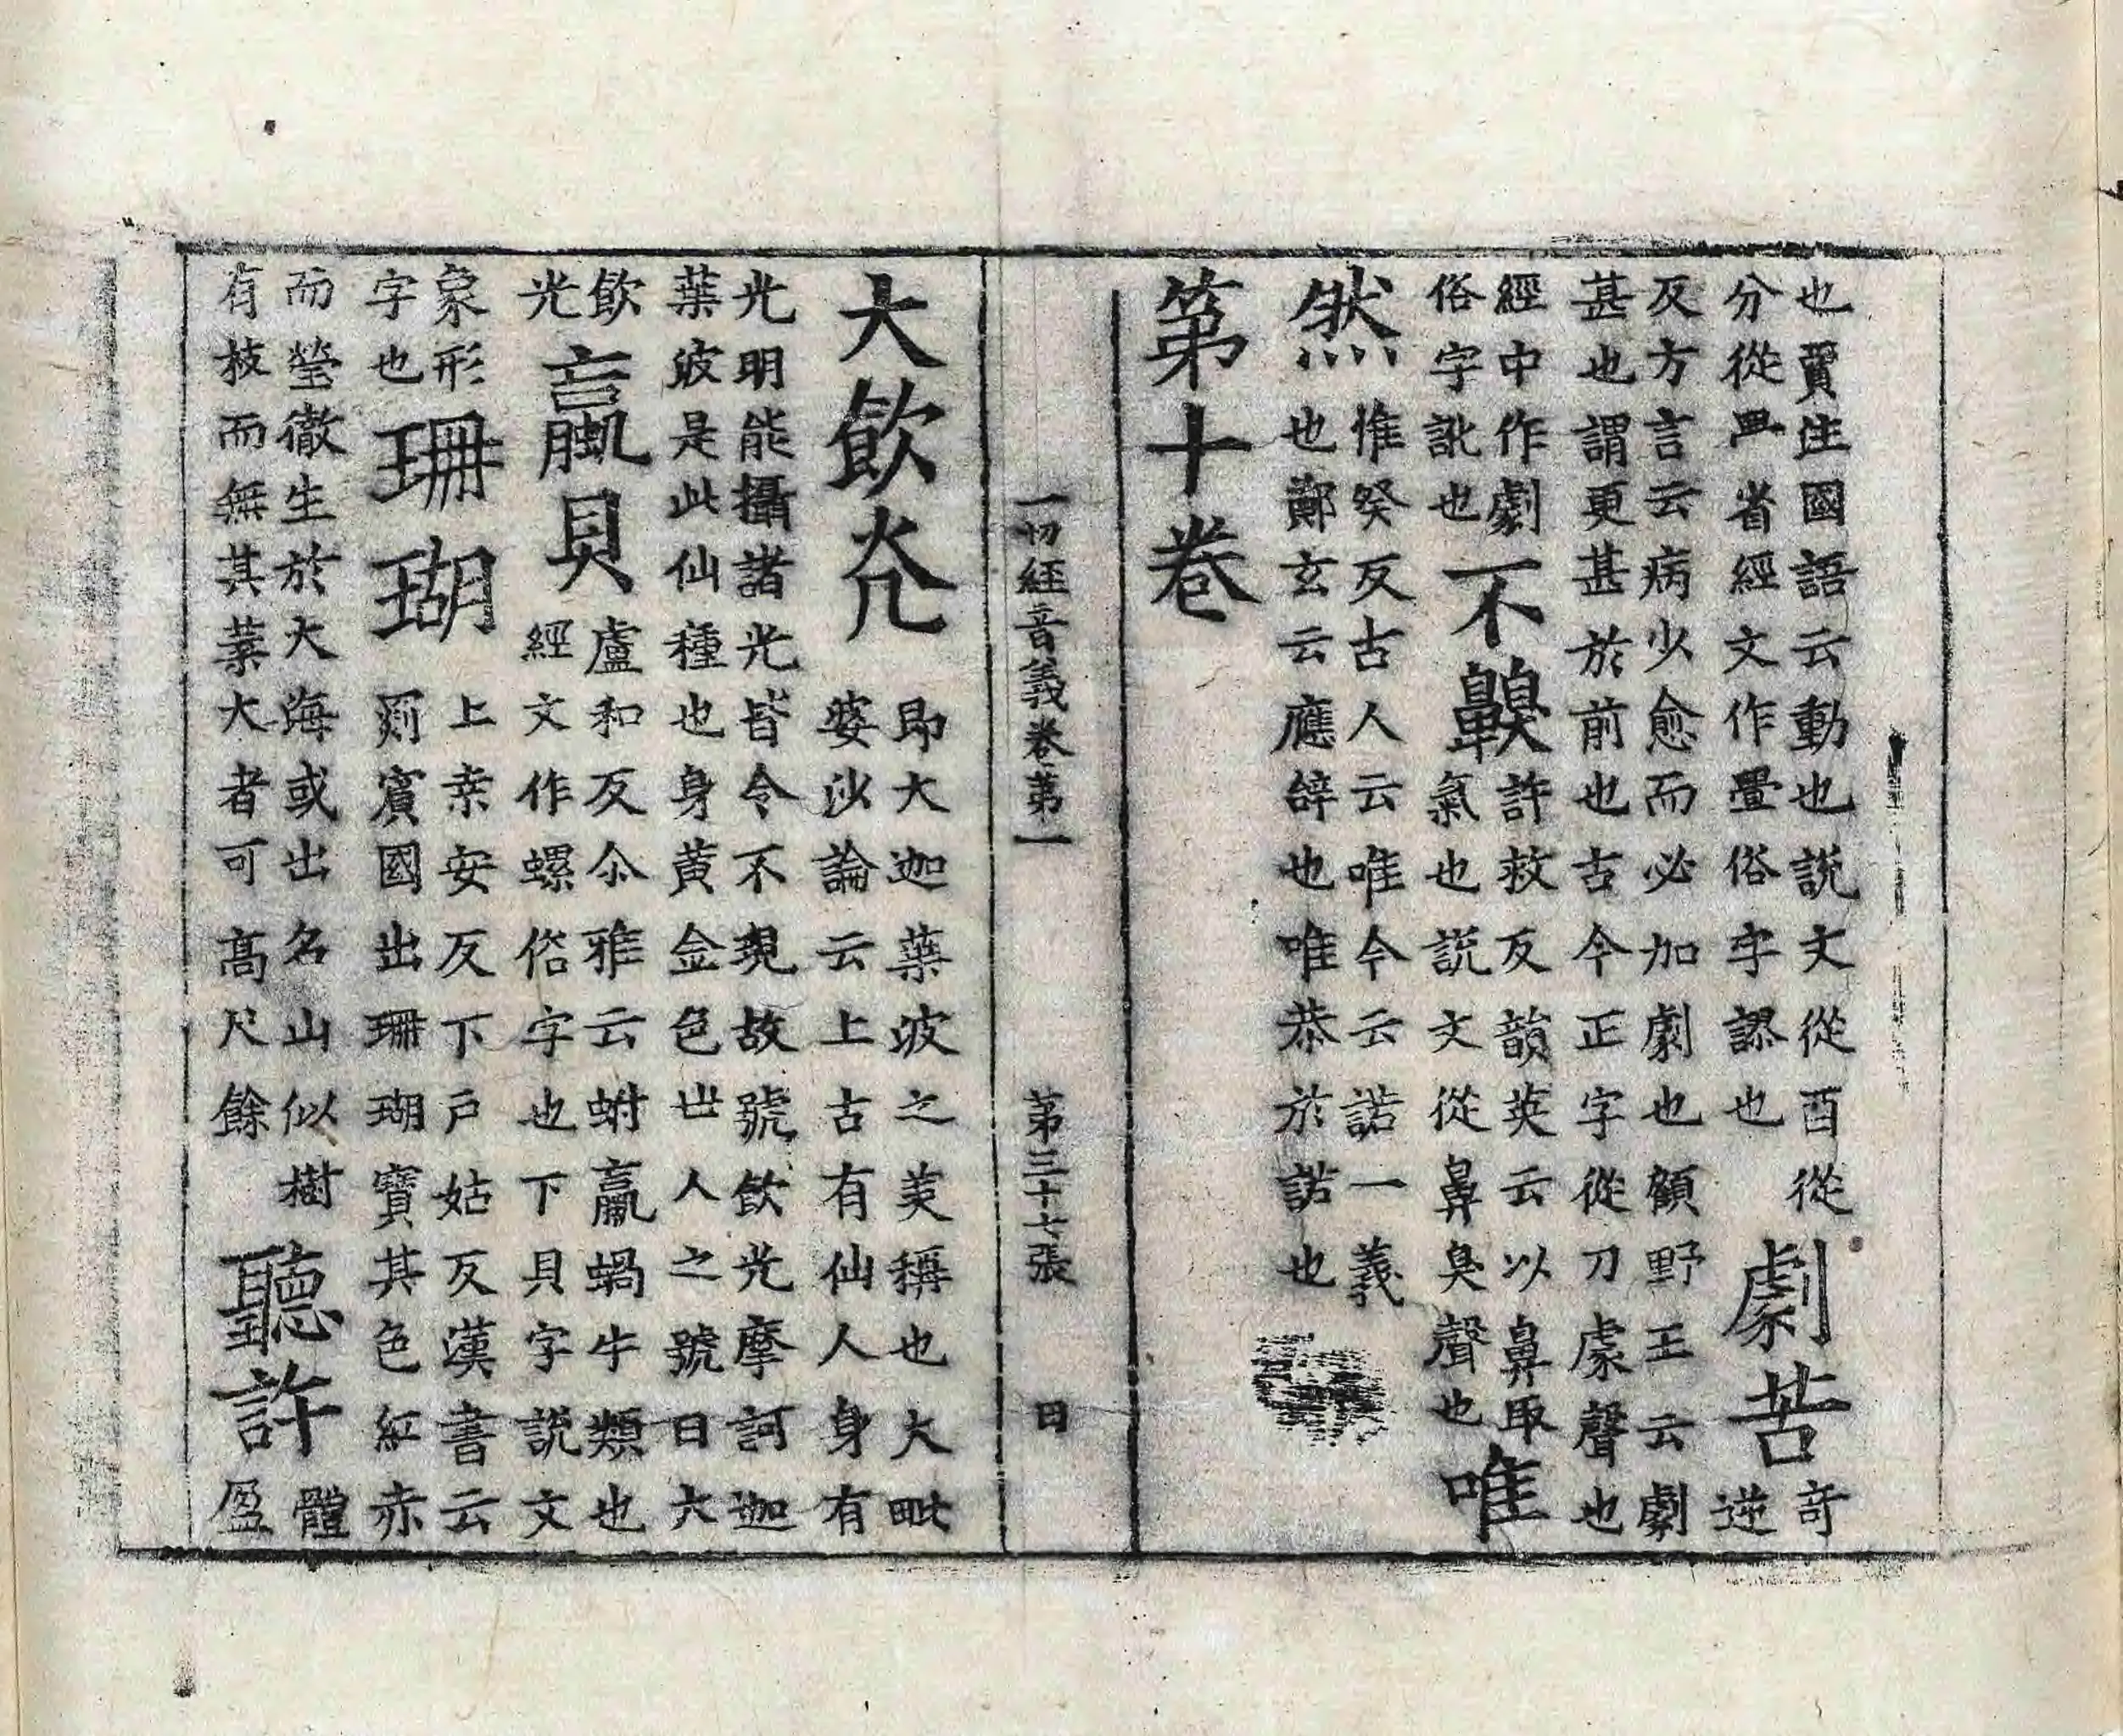 也賈注國語云動也説文從酉從
分從省經文作舋俗字謬也
劇苦
奇
逆
反方言云病少愈而必加劇也顧野王云劇
甚也謂更甚於前也古今正字從刀豦聲也
經中作劇
俗字訛也
不齅
許救反韻英云以鼻取
氣也説文從鼻臭聲也
唯
然
惟癸反古人云唯今云諾一義
也鄭玄云應辝也唯恭於諾也
第十卷
一切經音義卷第一 第三十七張 日
大飲光
即大迦葉波之美稱也大毗
婆沙論云上古有仙人身有
光明能攝諸光皆令不現故號飲光摩訶迦
葉波是此仙種也身黃金色世人之號曰大
飲
光
蠃貝
盧和反尒雅云蚹蠃蝸牛類也
經文作螺俗字也下貝字説文
象形
字也
珊瑚
上桒安反下戶姑反漢書云
罽賓國出珊瑚寶其色紅赤
而瑩徹生於大海或出名山似樹
有枝而無其葉大者可高尺餘
聽許
體
盈